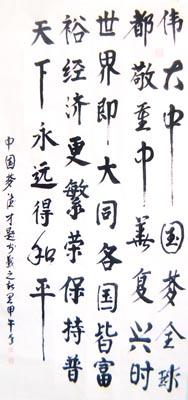 伟大中国梦全球
都敬重中華复兴时
世界即大同各国皆富
裕经济更繁荣保持普
天下永远得和平
中国梦 甲午年